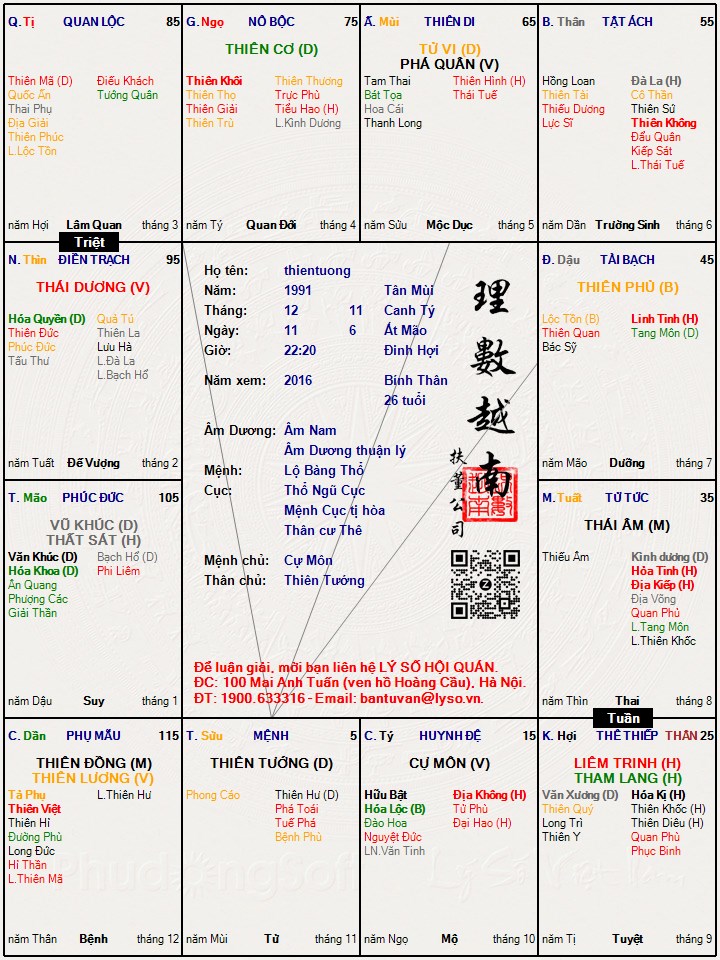 Q. Tị QUAN LỘC 85
Thiên Mã (D) Điếu Khách
Quốc Ấn Tướng Quân
Thai Phụ
Địa Giải
Thiên Phúc
L.Lộc Tồn
năm Hợi Lâm Quan tháng 3
G. Ngọ NÔ BỘC 75
THIÊN CƠ (D)
Thiên Khôi Thiên Thương
Thiên Thọ Trực Phù
Thiên Giải Tiểu Hao (H)
Thiên Trù L.Kình Dương
năm Tý Quan Đới tháng 4
Ấ. Mùi THIÊN DI 65
TỬ VI (D)
PHÁ QUÂN (V)
Tam Thai Thiên Hình (H)
Bát Tọa Thái Tuế
Hoa Cái
Thanh Long
năm Sửu Mộc Dục tháng 5
B. Thân TẬT ÁCH 55
Hồng Loan Đà La (H)
Thiên Tài Cô Thần
Thiếu Dương Thiên Sứ
Lực Sĩ Thiên Không
Đẩu Quân
Kiếp Sát
L.Thái Tuế
năm Dần Trường Sinh tháng 6
Triệt
N. Thìn ĐIỀN TRẠCH 95
THÁI DƯƠNG (V)
Hóa Quyền (D) Quả Tú
Thiên Đức Thiên La
Phúc Đức Lưu Hà
Tấu Thư L.Đà La
L.Bạch Hổ
năm Tuất Đế Vượng tháng 2
Họ tên: thientuong
Năm: 1991 Tân Mùi
Tháng: 12 11 Canh Tý
Ngày: 11 6 Ất Mão
Giờ: 22:20 Đinh Hợi
Năm xem: 2016 Bính Thân
26 tuổi
Âm Dương: Âm Nam
Âm Dương thuận lý
Mệnh: Lộ Bàng Thổ
Cục: Thổ Ngũ Cục
Mệnh Cục tị hòa
Thân cư Thê
Mệnh chủ: Cự Môn
Thân chủ: Thiên Tướng
理數越南
扶董公司
Để luận giải, mời bạn liên hệ LÝ SỐ HỘI QUÁN.
ĐC: 100 Mai Anh Tuấn (ven hồ Hoàng Cầu), Hà Nội.
ĐT: 1900.633316 - Email: bantuvan@lyso.vn.
Đ. Dậu TÀI BẠCH 45
THIÊN PHỦ (B)
Lộc Tồn (B) Linh Tinh (H)
Thiên Quan Tang Môn (D)
Bác Sỹ
năm Mão Dưỡng tháng 7
T. Mão PHÚC ĐỨC 105
VŨ KHÚC (D)
THẤT SÁT (H)
Văn Khúc (D) Bạch Hổ (D)
Hóa Khoa (D) Phi Liêm
Ân Quang
Phượng Các
Giải Thần
năm Dậu Suy tháng 1
M. Tuất TỬ TỨC 35
THÁI ÂM (M)
Thiếu Âm Kình dương (D)
Hỏa Tinh (H)
Địa Kiếp (H)
Địa Võng
Quan Phủ
L.Tang Môn
L.Thiên Khốc
năm Thìn Thai tháng 8
Tuần
C. Dần PHỤ MẪU 115
THIÊN ĐỒNG (M)
THIÊN LƯƠNG (V)
Tả Phụ L.Thiên Hư
Thiên Việt
Thiên Hỉ
Đường Phù
Long Đức
Hỉ Thần
L.Thiên Mã
năm Thân Bệnh tháng 12
T. Sửu MỆNH 5
THIÊN TƯỚNG (D)
Phong Cáo Thiên Hư (D)
Phá Toái
Tuế Phá
Bệnh Phù
năm Mùi Tử tháng 11
C. Tý HUYNH ĐỆ 15
CỰ MÔN (V)
Hữu Bật Địa Không (H)
Hóa Lộc (B) Tử Phù
Đào Hoa Đại Hao (H)
Nguyệt Đức
LN.Văn Tinh
năm Ngọ Mộ tháng 10
K. Hợi THÊ THIẾP THÂN 25
LIÊM TRINH (H)
THAM LANG (H)
Văn Xương (D) Hóa Kị (H)
Thiên Quý Thiên Khốc (H)
Long Trì Thiên Diêu (H)
Thiên Y Quan Phù
Phục Binh
năm Tị Tuyệt tháng 9